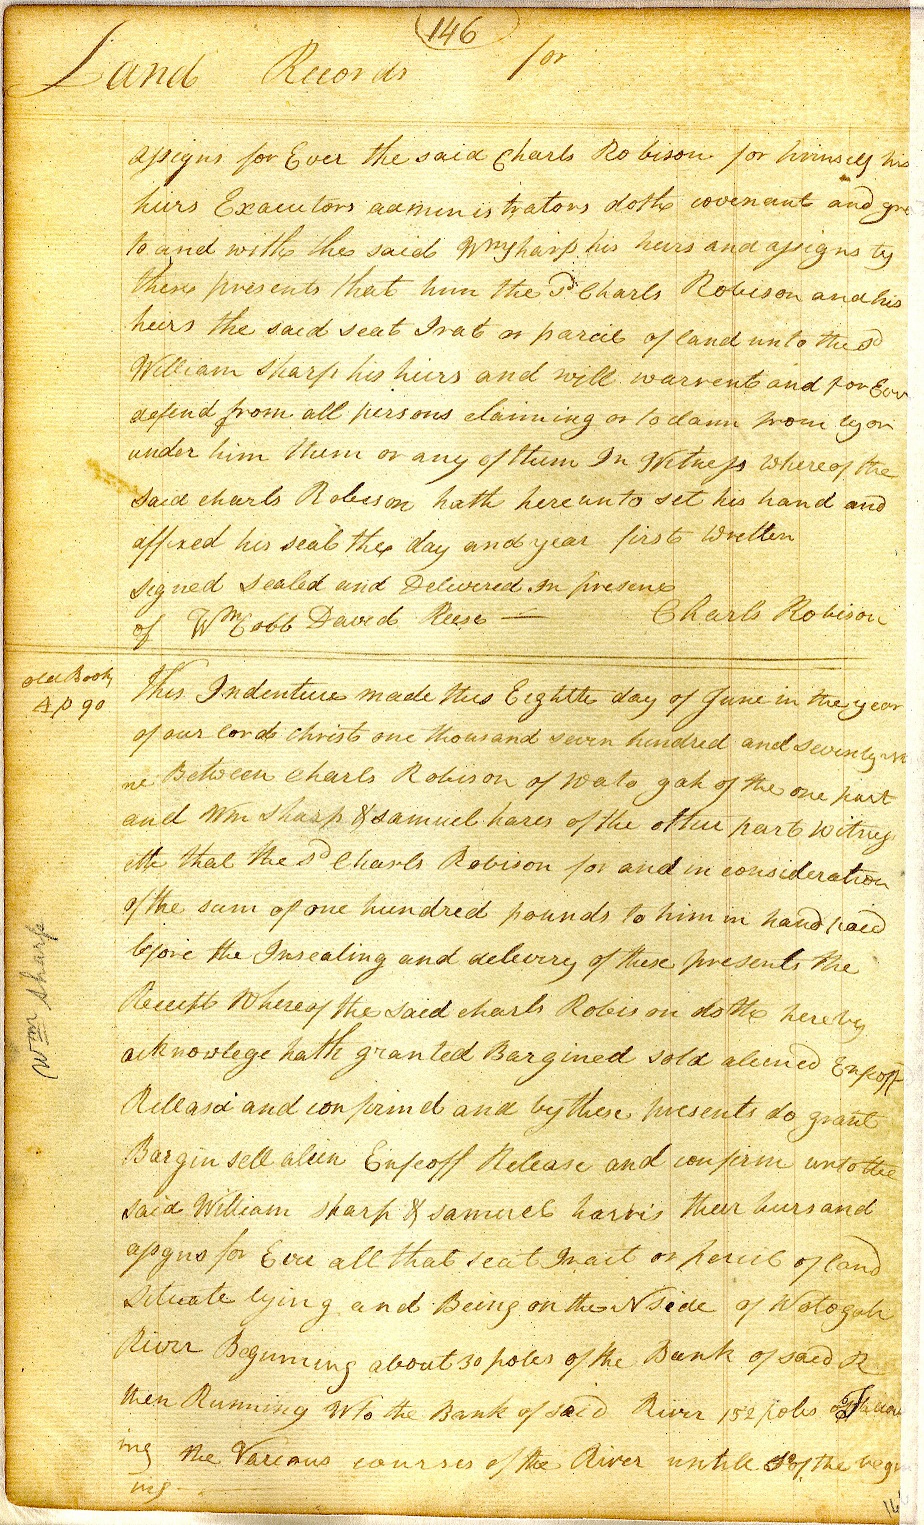 146
Land Records for
assigns for Ever the said Charls Robison for himself his
heirs Executors administrators doth covenant and gre
to and with the said Wm Sharp his heirs and assigns by
these presents that him the sd Charls Robison and his
heirs the said seat Trat or parcil of land unto the sd
William Sharp his heirs and will warrent and for Ever
defend from all persons claiming or to claim from by or
under him them or any of them In Witness whereof the
said charls Robison hath hereunto set his hand and
affixed his seal the day and year first written
signed sealed and Delivered in presenc
of Wm Cobb David Reese — Charls Robison
old Book
A p 90
This Indenture made this Eighth day of June in the year
of our lord christ one thousand seven hundred and seventy
ne Between Charls Robison of Watogah of the one part
and Wm Sharp & samuel hares of the other part Witness
eth that the sd Charls Robison for and in consideration
of the sum of one hundred pounds to him in hand paid
before the Insealing and delivery of these presents the
Receipt Whereof the said charls Robison doth hereby
acknowlege hath granted Bargined sold aliened Enfeoff
Releasd and confirmd and by these presents do grant
Bargin sell alien Enfeoff Release and confirm unto the
said William Sharp & samuel harris their heirs and
assigns for Ever all that seat Tract or parcil of land
Situate lying and Being on the N side of Watogah
River Begining about 30 poles of the Bank of said R
then Running W to the Bank of said River 152 poles
ing the Various courses of the River untill So of the begin
ing
Wm Sharp